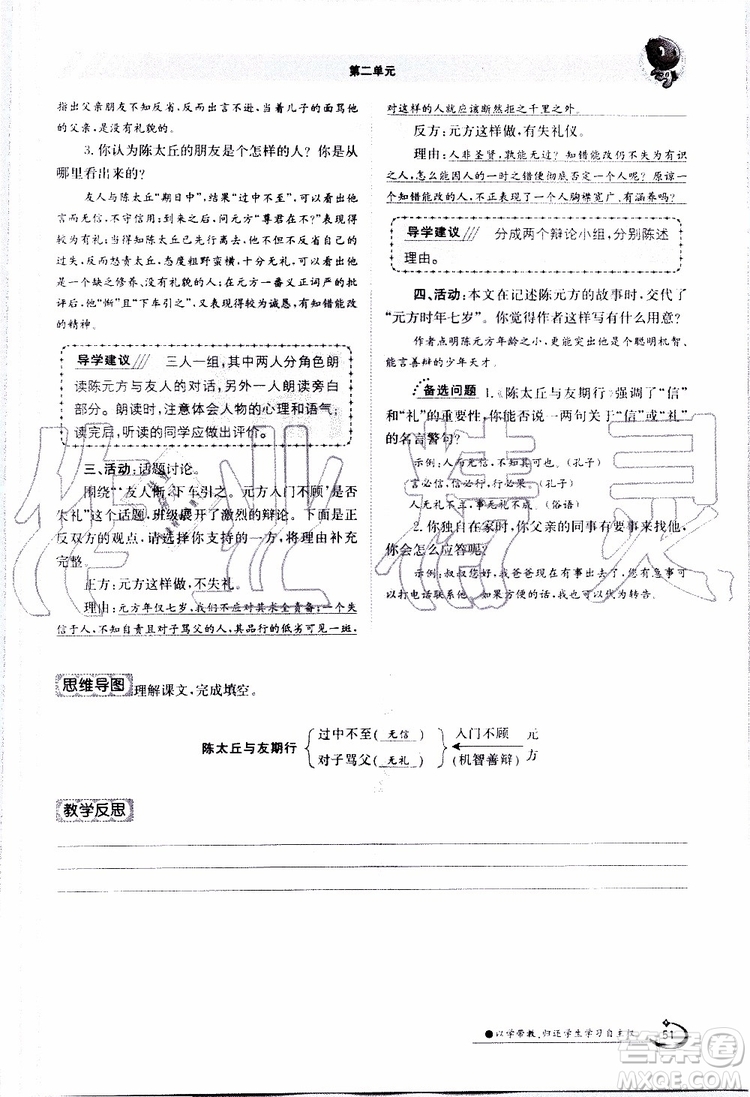 第二单元
指出父亲朋友不知反省，反而出言不逊，当着儿子的面骂他
的父亲，是没有礼貌的。
3. 你认为陈太丘的朋友是个怎样的人？你是从
哪里看出来的？
友人与陈太丘“期日中”，结果“过中不至”，可以看出他
言而无信，不守信用；到来之后，问元方“尊君在不？”表现得
较为有礼；当得知陈太丘已离去时，他勃然大怒，不反省自己的
过失，反而责骂陈太丘，态度粗野蛮横，十分无礼，可以看出他
是一个缺乏修养、没有礼貌的人；在元方一番义正词严的批
评后，他“惭”且“下车引之”，又表现得较为诚恳，有知错能改
的精神。
导学建议 三人一组，其中两人分角色朗
读陈元方与友人的对话，另外一人朗读旁白
部分。朗读时，注意体会人物的心理和语气，
读完后，听读的同学应做出评价。
三、活动：话题讨论。
围绕“‘友人惭，下车引之。元方入门不顾’是否
失礼”这个话题，班级展开了激烈的辩论。下面是正
反双方的观点，请选择你支持的一方，将理由补充完
整。
正方：元方这样做，不失礼。
理由：元方年仅七岁，我们不应对其求全责备；一个失
信于人、不知自责且对子骂父的人，其品行的低劣可见一斑，
对这样的人就应该断然拒之千里之外。
反方：元方这样做，有失礼仪。
理由：人非圣贤，孰能无过？知错能改仍不失为有识
之人，怎么能因人的一时之错而否定一个人呢？原谅一
个知错能改的人，不正表现了一个人胸襟宽广、有涵养吗？
导学建议 分成两个辩论小组，分别陈述
理由。
四、活动：本文在记述陈元方的故事时，交代了
“元方时年七岁”。你觉得作者这样写有什么用意？
作者点明陈元方年龄之小，突出他是一个聪明机智、
能言善辩的少年天才。
备选问题 1.《陈太丘与友期行》强调了“信”
和“礼”的重要性，你能否说一两句关于“信”或“礼”
的名言警句？
示例：人而无信，不知其可也。（孔子）
言必信，行必果。（孔子）
人无礼不立，事无礼不成。（俗语）
2. 你独自在家时，你父亲的同事有事来访，
你会怎么应答呢？
示例：叔叔您好，我爸爸现在不在家，您有急事可
以打电话联系他。如果方便的话，我也可以为您转告。
思维导图 理解课文，完成填空。
陈太丘与友期行 { 过中不至（无信） 对子骂父（无礼） } ← 入门不顾（机智善辩） 元方
教学反思
●以学带教，归还学生学习自主权 51
作业精灵
答案圈